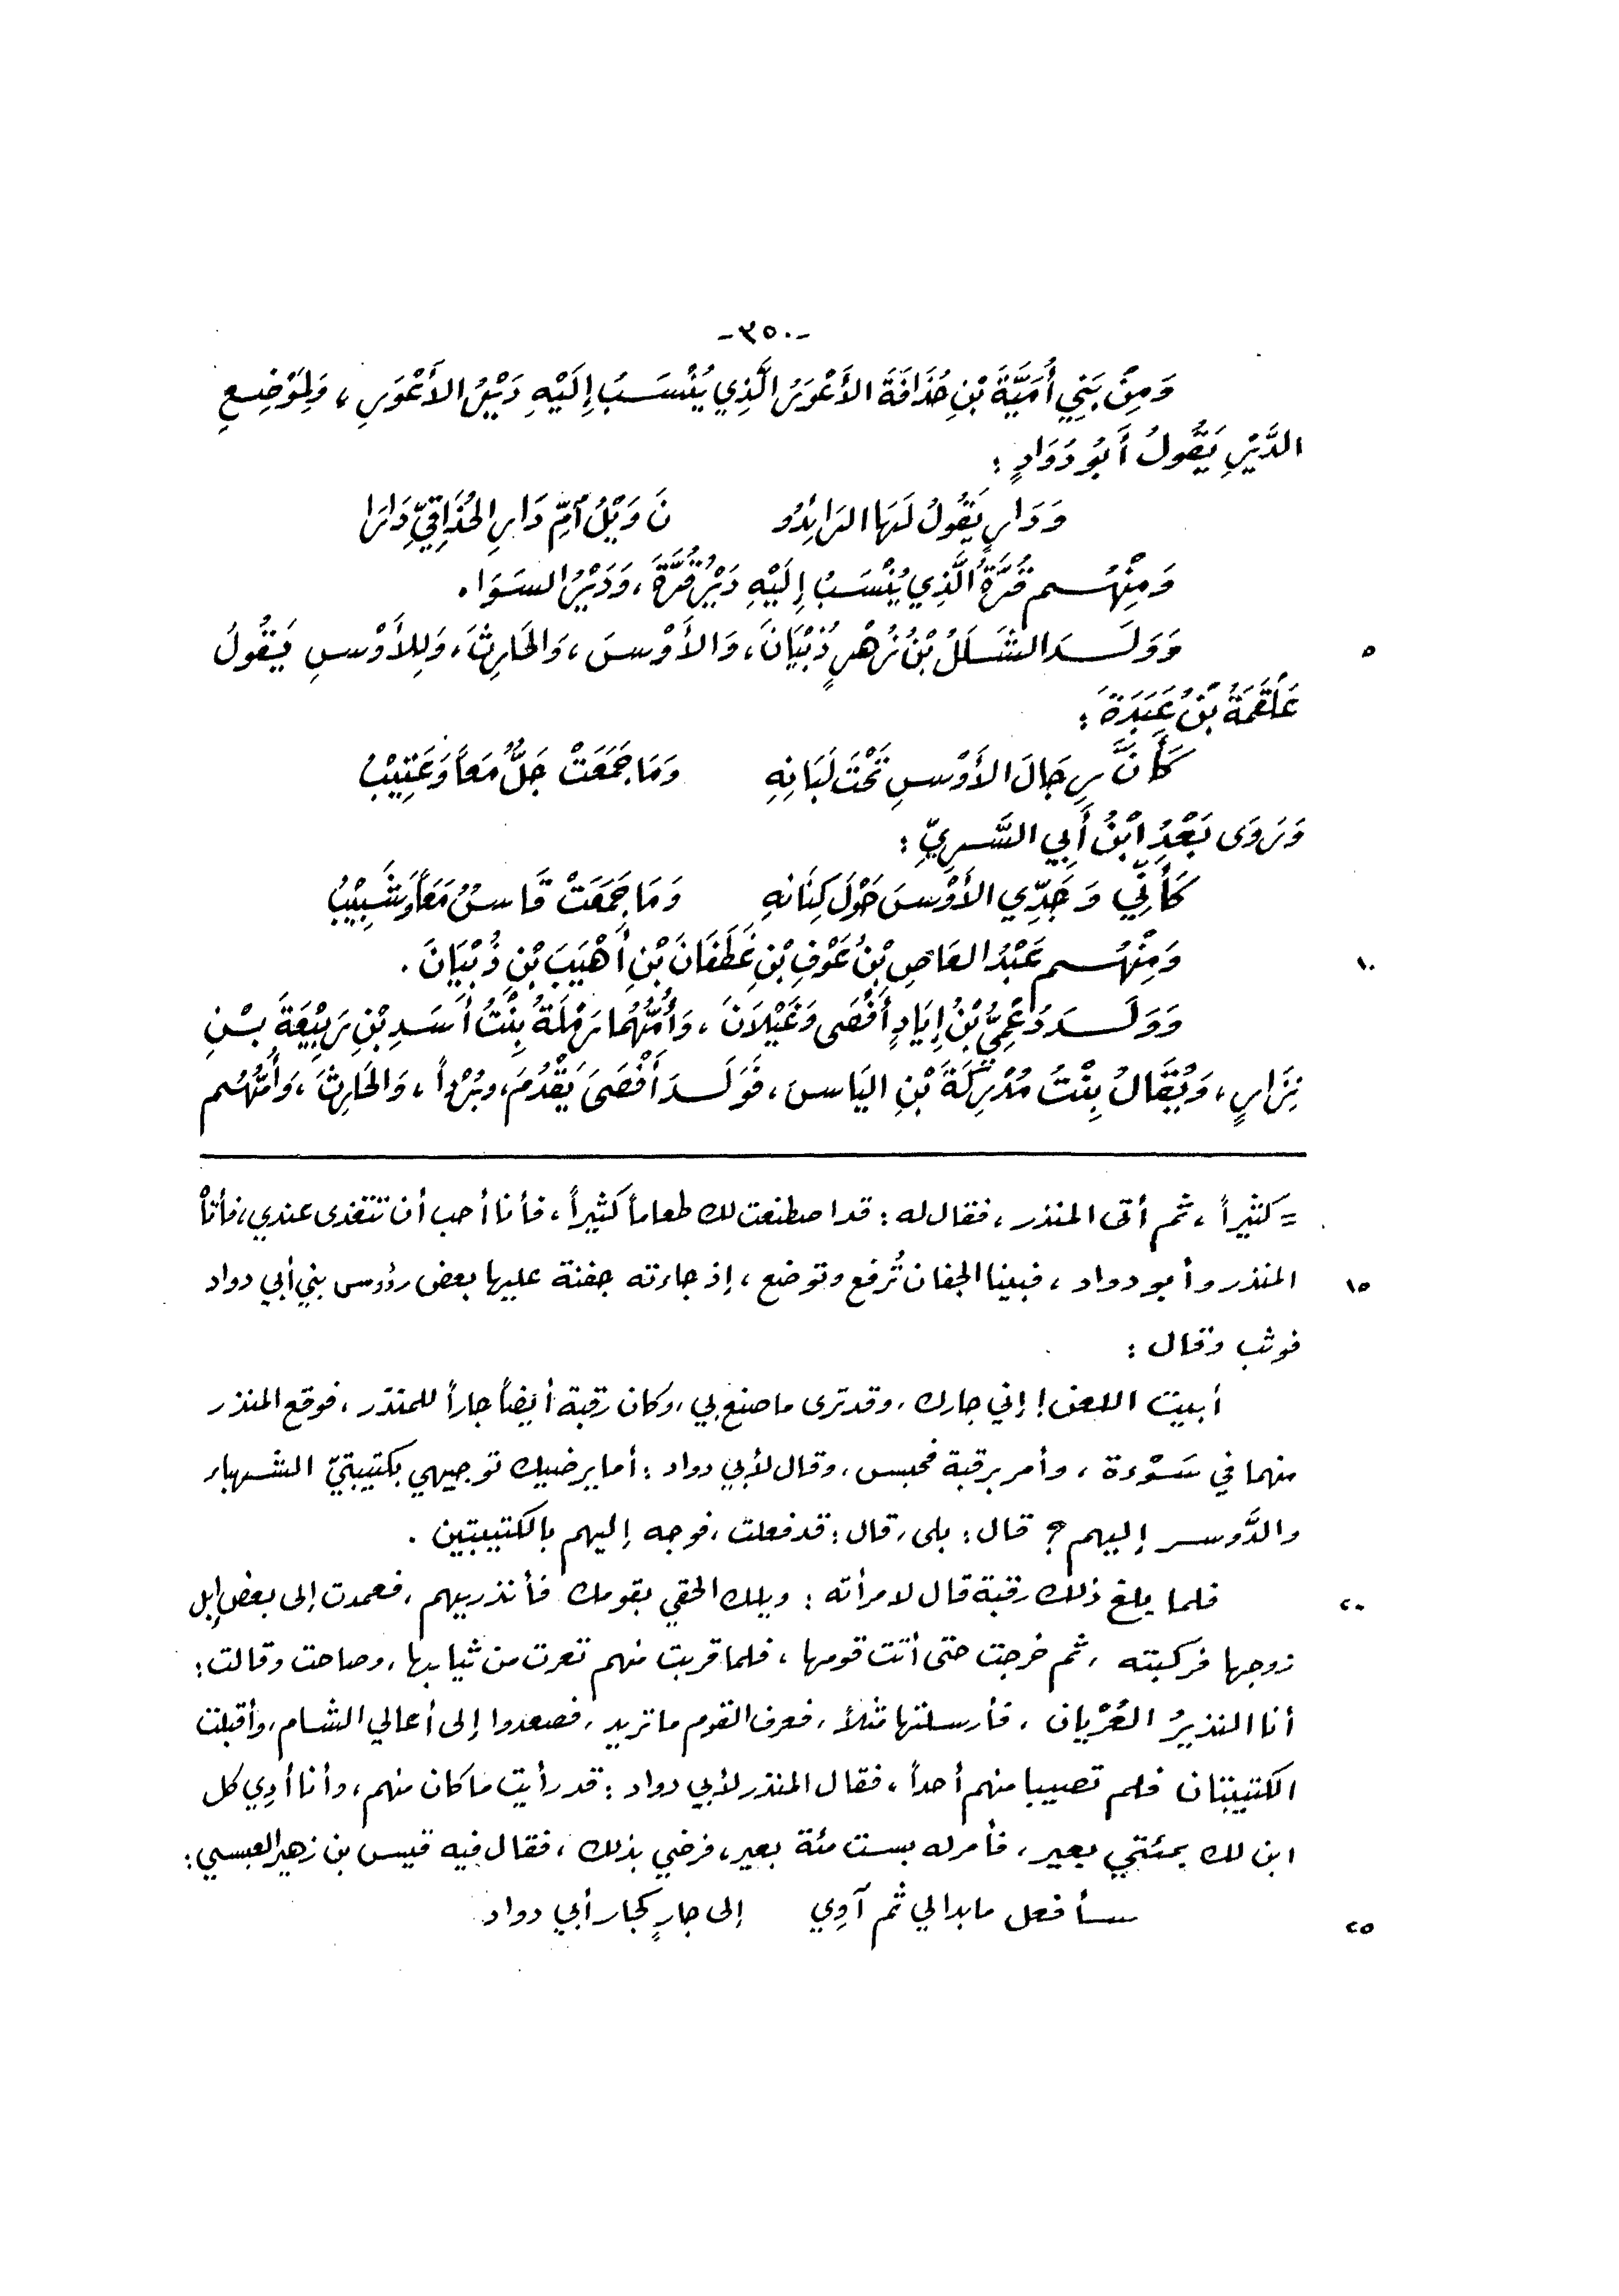 -٣٥٠-
وَمِنْ بَنِي أُمَيَّةَ بْنِ حُذَافَةَ الأَعْوَرُ الَّذِي يُنْسَبُ إِلَيْهِ دَيْرُ الأَعْوَرِ، وَلِمَوْضِعِ
الدَّيْرِ يَقُولُ أَبُو دُوَادٍ :
وَدَارٍ يَقُولُ لَهَا الرَائِدُو نَ وَيْلُ أُمِّ دَارِ الحُذَاقِيِّ دَارَا
وَمِنْهُم قُرَّةُ الَّذِي يُنْسَبُ إِلَيْهِ دَيْرُ قُرَّةَ، وَدَيْرُ السَوَا.
٥ وَوَلَدَ الشَلَلُ بْنُ زُهْرٍ ذُبْيَانَ، وَالأَوْسَ، وَالحَارِثَ، وَلِلأَوْسِ يَقُولُ
عَلْقَمَةُ بْنُ عَبَدَةَ :
كَأَنَّ رِجَالَ الأَوْسِ تَحْتَ لَبَانِهِ وَمَا جَمَعَتْ جَلُّ مَعاً وَعَتِيْبُ
وَرَوَى بَعْدُ ابْنُ أَبِي السَّرِيِّ :
كَأَنِّي وَجَدِّي الأَوْسَ حَوْلَ كِنَانِهِ وَمَا جَمَعَتْ قَاسٌ مَعَاً وَشَبِيْبُ
١٠ وَمِنْهُم عَبْدُ العَاصِ بْنُ عَوْفِ بْنِ غَطَفَانَ بْنِ أُهْيَبَ بْنِ ذُبْيَانَ .
وَوَلَدَ دُعْمِيُّ بْنُ إِيَادٍ أَفْصَى وَغَيْلَانَ، وَأُمُّهُمَا رَمْلَةُ بِنْتُ أَسَدِ بْنِ رَبِيْعَةَ بْنِ
نِزَارٍ، وَيُقَالُ بِنْتُ مُدْرِكَةَ بْنِ اليَاسَ، فَوَلَدَ أَفْصَى يَقْدُمَ، وبُرْداً، وَالحَارِثَ، وَأُمُّهُم
= كثيراً، ثم أتى المنذر، فقال له : قد اصطنعت لك طعاماً كثيراً، فأنا أحب أن تتغدى عندي، فأتاْ
١٥ المنذر وأبو دواد، فبينا الجفان تُرفع وتوضع، إذ جاءته جفنة عليها بعض رؤوس بني أبي دواد
فوثب وقال :
أبيت اللعن! إني جارك، وقد ترى ما صنع بي، وكان رقبة أيضاً جاراً للمنذر، فوقع المنذر
منهما في سَوْءة، وأمر برقبة فحبس، وقال لأبي دواد : أما يرضيك توجيهي بكتيبتيّ الشهباء
والدَّوسر إليهم؟ قال : بلى، قال : قد فعلت، فوجه إليهم بالكتيبتين .
٢٠ فلما بلغ ذلك رقبة قال لامرأته : ويلك الحقي بقومك فأنذريهم، فعمدت إلى بعض إبل
زوجها فركبته، ثم خرجت حتى أتت قومها، فلما قربت منهم تعرت من ثيابها، وصاحت وقالت :
أنا النذيرُ العُرْيان، فأرسلتها مثلاً، فعرف القوم ما تريد، فصعدوا إلى أعالي الشام، وأقبلت
الكتيبتان فلم تصيبا منهم أحداً، فقال المنذر لأبي دواد : قد رأيت ما كان منهم، وأنا أدِي كل
ابن لك بمئتي بعير، فأمر له بست مئة بعير، فرضي بذلك، فقال فيه قيس بن زهير العبسي :
٢٥ سأفعل ما بدا لي ثم آوِي إلى جارٍ كجار أبي دواد